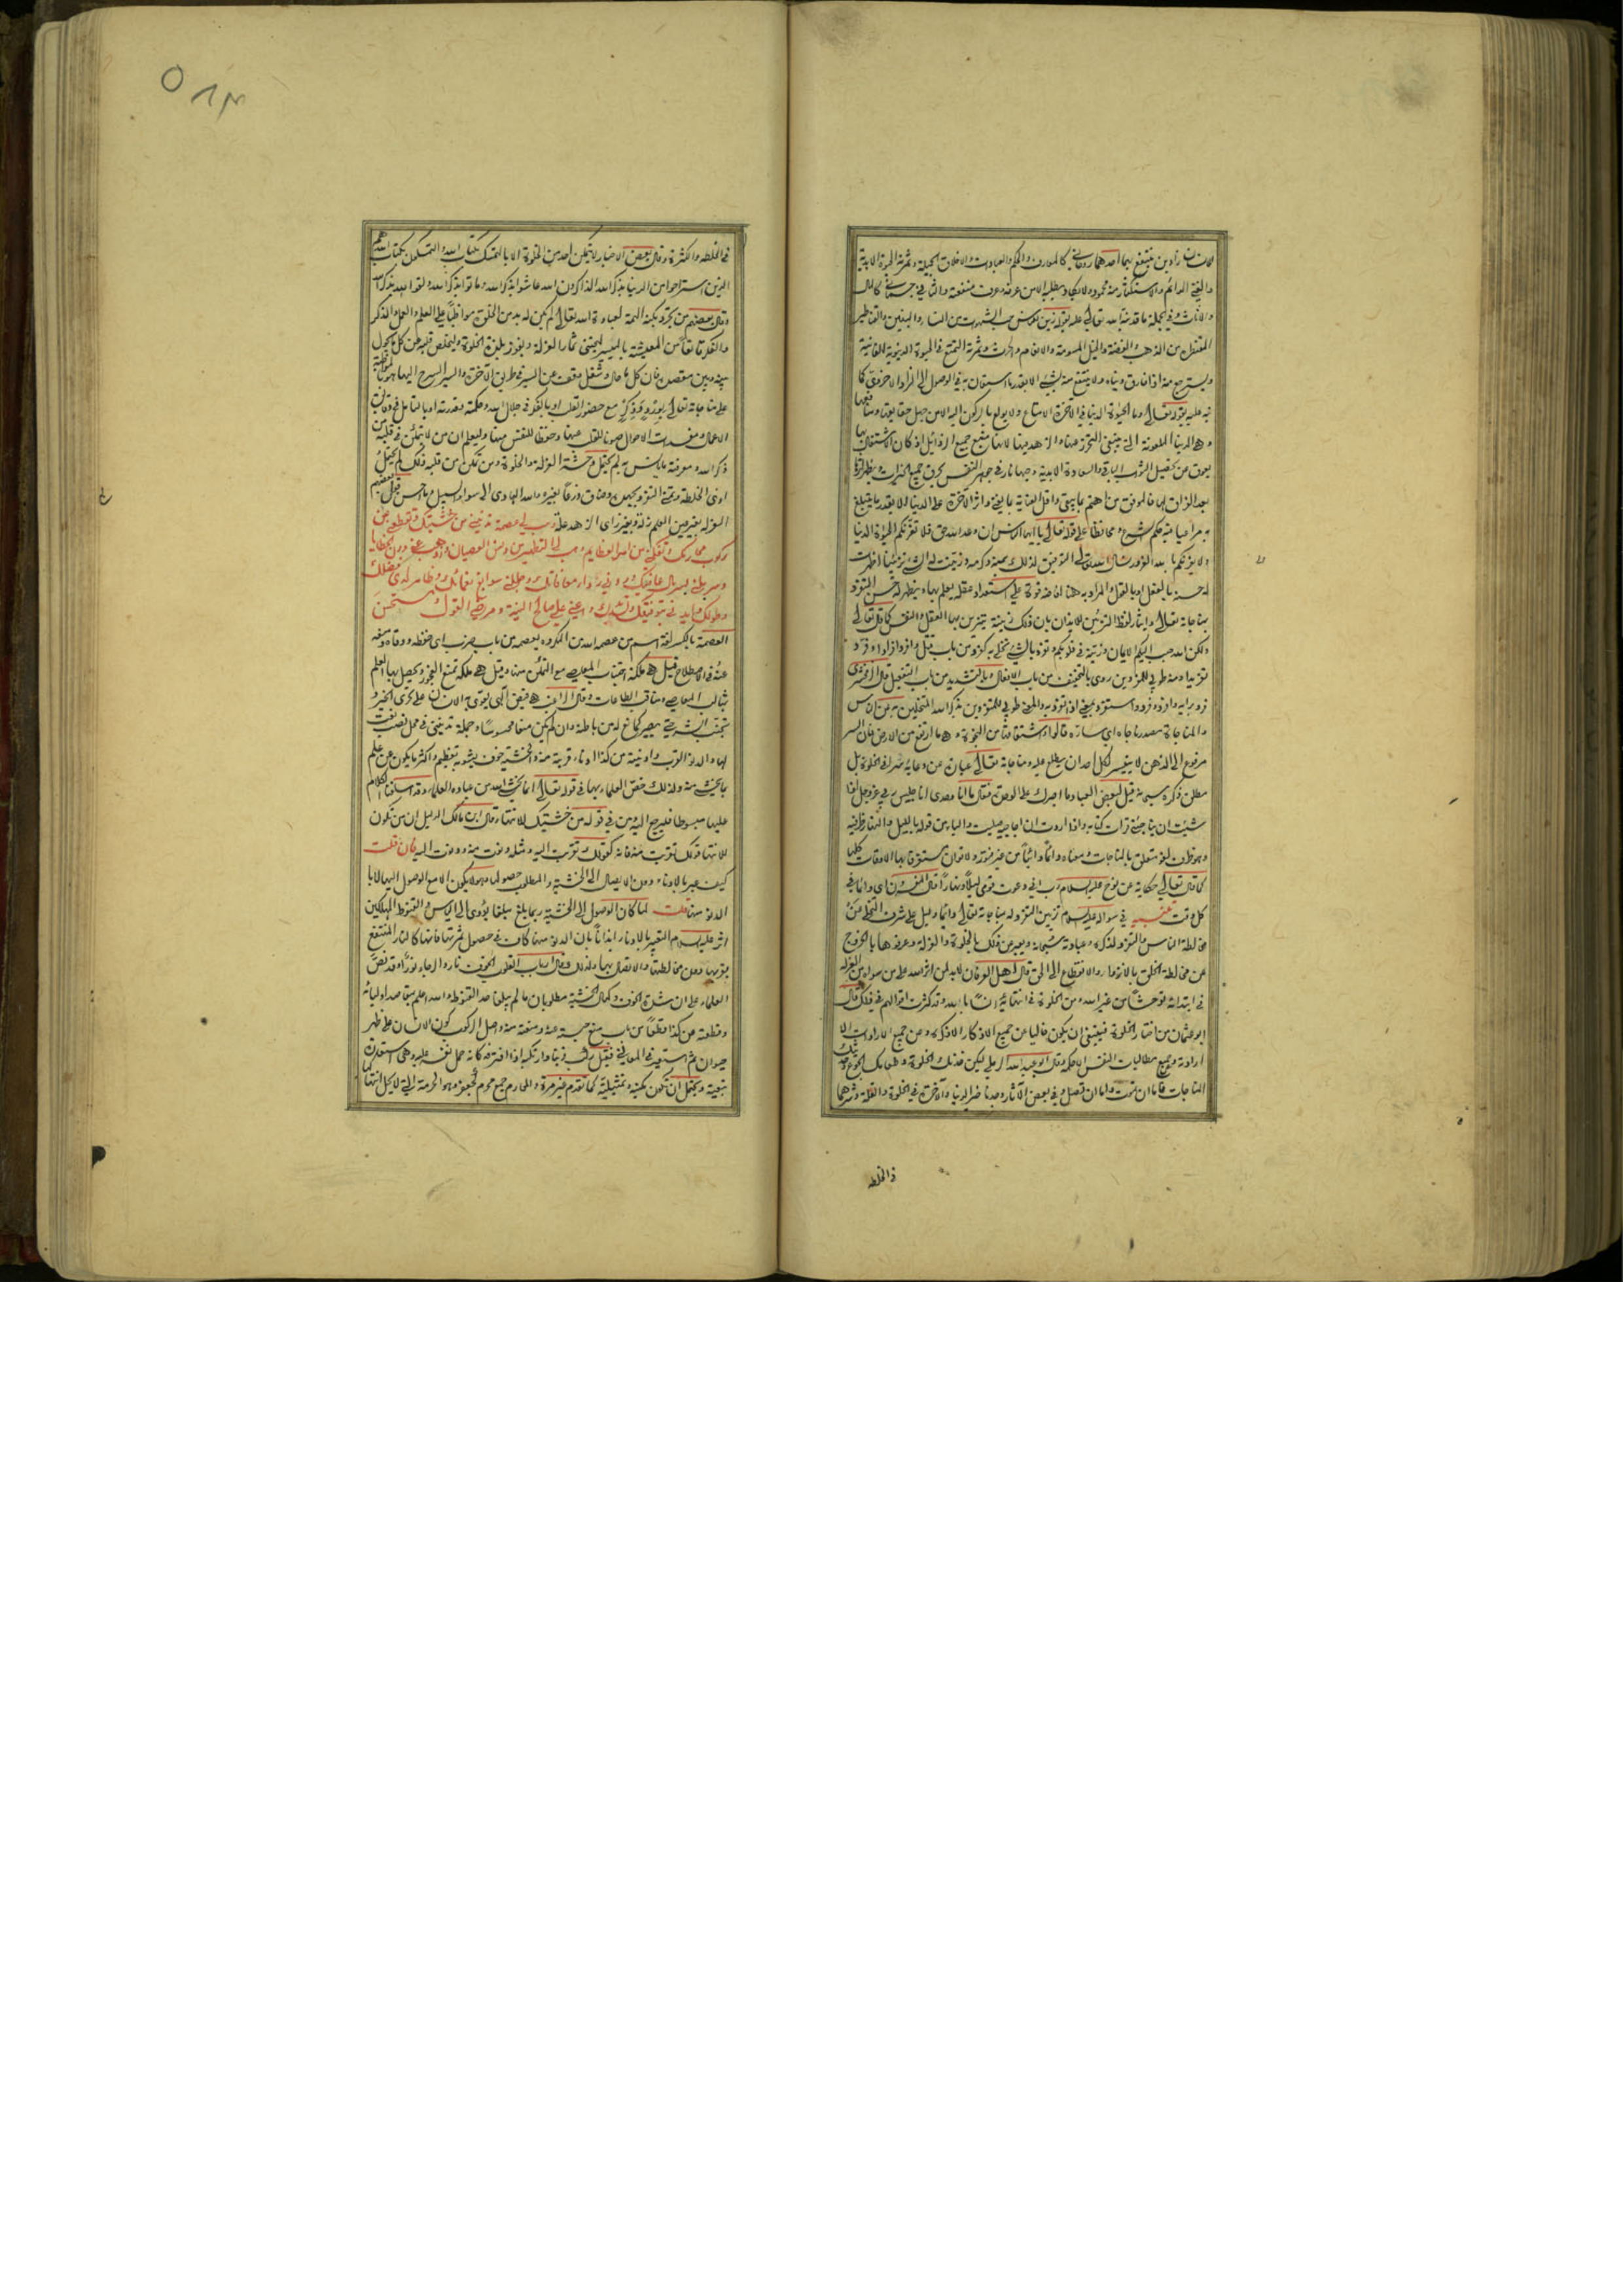 للانسان زادين ينتفع بهما احدهما روحاني كالمعارف والحكم والعبادات والاخلاق الجميلة وثمرته الحيوة الابدية
والغنى الدائم والاستكثار منه محمود ولا يكاد يطلبه الا من عرفه وعرف منفعته والثاني جسماني كالمال
والاثاث وفي الجملة ما قد نبه الله تعالى عليه بقوله زين للناس حب الشهوات من النساء والبنين والقناطير
المقنطرة من الذهب والفضة والخيل المسومة والانعام والحرث وثمرته التمتع في الحيوة الدنيوية الفانية
ويسترجع منه اذا فارق دنياه ولا ينتفع منه بشيء الا بقدر ما استعان به في الوصول الى الزاد الاخروي كما
نبه عليه بقوله تعالى وما الحيوة الدنيا في الآخرة الا متاع ولا يولع بالركون اليه الا من جهل حقايقه ومنافعها
وهي الدنيا الملعونة التي ينبغي التحرز عنها والزهد فيها لانها منبع جميع الرذائل اذ كان الاشتغال بها
يعوق عن تحصيل الباقي والسعادة الابدية وحبها نار في جوهر النفس يحرق جميع الخيرات ويظهر اثرها
بعد الفراق لها فالموفق من اهتم بما يبقى واقل العناية بما يفنى واثر الآخرة على الدنيا الا بقدر ما يتبلغ
به مراعيا فيه حكم الشرع ومحافظا على قوله تعالى يا ايها الناس ان وعد الله حق فلا تغرنكم الحيوة الدنيا
ولا يغرنكم بالله الغرور نسأل الله تعالى التوفيق لذلك بمنه وكرمه وزينت له الشيء تزيينا اظهرت
له حسنه بالفعل او بالقول والمراد به هنا افاضة قوة على استعداد عقله يعلم بها ويظهر له حسن التفرد
بمناجاته تعالى وايثار لفظ التزيين للايذان بان ذلك زينة يتزين بها العقل والنفس كما قال تعالى
ولكن الله حبب اليكم الايمان وزينه في قلوبكم وتفرد بالشيء تخلى به كفرد من باب قتل وافرد افرادا وفرد
تفريدا ومنه طوبى للمفردين روى بالتخفيف من باب الافعال وبالتشديد من باب التفعيل قال الزمخشري
فرد برايه وافرد وفرد واستفرد بمعنى اذا تفرد به والمعنى طوبى للمتفردين بذكر الله المتخلين به من الناس
والمناجاة مصدر ناجاه اي ساره قالوا واشتقاقه من النجوة وهي ما ارتفع من الارض فان السر
مرفوع الى الذهن لا يتيسر لكل احد ان يطلع عليه ومناجاته تعالى عبارة عن دعائه سرا في الخلوة بل
مطلق ذكره سبحانه قيل لبعض العباد ما اصبرك على الوحدة فقال ما انا وحدي انا جليس ربي عز وجل اذا
شئت ان يناجيني قرأت كتابه واذا اردت ان اناجيه صليت والباء من قوله بالليل والنهار ظرفية
وهو ظرف لغو متعلق بالمناجات ومعناه دائما واتيا من غير فتور ولا توان مستغرقا بها الاوقات كلها
كما قال تعالى حكاية عن نوح عليه السلام رب اني دعوت قومي ليلا ونهارا قال المفسرون اي دائما في
كل وقت تنبيه في سؤاله عليه السلام تزيين التفرد له بمناجاته تعالى دائما دليل على شرف التخلي عن
مخالطة الناس والتفرد لذكره وعبادته سبحانه ويعبر عن ذلك بالخلوة والعزلة وعرفوها بالخروج
عن مخالطة الخلق بالانزواء والانقطاع الى الحق قال اهل العرفان لابد لمن اثر الله على من سواه من العزلة
في ابتدائه توحشا من غير الله ومن الخلوة في انتهائه انسا بالله وقد كثرت اقوالهم في ذلك قال
ابو عثمان من اختار الخلوة فينبغي ان يكون خاليا عن جميع الاذكار الا ذكره وعن جميع الارادات الا
ارادته وعن جميع مطالبات النفس الا حكمه وقال ابو عبد الله الرملي ليكن خدنك الخلوة وطعامك الجوع وحديثك
المناجات فاما ان تموت واما ان تصل وفي بعض الآثار وجدنا خير الدنيا والآخرة في الخلوة والقلة وشرهما
في الخلطة
في الخلطة والكثرة وقال بعض الاخيار لا يتمكن احد من الخلوة الا بالتمسك بكتاب الله والمتمسكون بكتاب الله هم
الذين استراحوا من الدنيا بذكر الله الذاكرون الله عاشوا بذكر الله وماتوا بذكر الله ولقوا الله بذكر الله
وقال بعضهم من تجرد بكنه الهمة لعبادة الله تعالى لم يكن له بد من الخلوة مواظبا على العلم والعمل والذكر
والفكر قانعا من المعيشة باليسير ليجتني ثمار العزلة ويفوز بلذة الخلوة وليخلص قلبه من كل ما يحول
بينه وبين مقصده فان كل ما حال وشغل يقف عن السير في طريق الآخرة والسير السرح اليها هو المواظبة
على مناجاته تعالى بورد وذكر مع حضور القلب او بالفكر في جلال الله وحكمته وقدرته او بالتامل في دقائق
الاعمال ومفسدات الاحوال صونا للقلب عنها وحفظا للنفس منها وليعلم ان من لا يتمكن في قلبه من
ذكر الله ومعرفته ما يانس به لم يحتمل وحشة العزلة والخلوة ومن تمكن من قلبه ذلك لم يحتمل
ادنى الخلطة وتمنى التفرد بجهده وضاق ذرعا بغيره والله الهادي الى سواء السبيل وما احسن قول بعضهم
العزلة بغير عين العلم زلة وبغير زاي الزهد علة وهب لي عصمة تدنيني من خشيتك وتقطعني عن
ركوب محارمك وتفكني من اسر العظايم وهب لي التطهير من دنس العصيان واذهب عني درن الخطايا
وسربلني بسربال عافيتك وردني رداء معافاتك وجللني سوابغ نعمائك وظاهر لدي فضلك
وطولك وايدني بتوفيقك وتسديدك واعني على صالح النية ومرضي القول ومستحسن
العصمة بالكسر لغة اسم من عصمه الله من المكروه يعصمه من باب ضرب اي حفظه ووقاه ومنعه
عنه وفي الاصطلاح قيل هي ملكة اجتناب المعاصي مع التمكن منها وقيل هي ملكة تمنع الفجور ويحصل بها العلم
بمثالب المعاصي ومناقب الطاعات وقال الراغب هي فيض الهي يقوى به الانسان على تحري الخير و
تجنب الشر حتى يصير كمانع له من باطنه وان لم يكن منعا محسوسا وجملة تدنيني في محل نصب نعت
لها والدنو القرب وادنيته من كذا ادناء قربته منه والخشية خوف يشوبه تعظيم واكثر ما يكون عن علم
بما يخشى منه ولذلك خص العلماء بها في قوله تعالى انما يخشى الله من عباده العلماء وقد اسلفنا الكلام
عليها مبسوطا فليرجع اليه ومن في قوله من خشيتك للانتهاء قال ابن مالك الدليل ان من تكون
للانتهاء قولك قربت منه فانه كقولك قربت اليه ومثله دنوت منه ودنوت اليه فان قلت
كيف عبر بالادناء دون الايصال الى الخشية والمطلوب حصولها وهو لا يكون الا مع الوصول اليها لا با
لدنو منها قلت لما كان الوصول الى الخشية ربما بلغ مبلغا يؤدي الى الياس والقنوط المهلكين
اثر عليه السلام التعبير بالادناء ايذانا بان الدنو منها كاف في حصول ثمرتها فانها كالنار المنتفع
بقربها دون مخالطتها والاتصال بها ولذلك قال ارباب القلوب الخوف نار والرجاء نور وقد نص
العلماء على ان شدة الخوف وكمال الخشية مطلوبان ما لم يبلغا حد القنوط والله اعلم بمقاصد اوليائه
وقطعته عن كذا قطعا من باب منع حبسته عنه ومنعته منه واصل الركوب كون الانسان على ظهر
حيوان ثم استعير في المعاني فقيل ركب ذنبا وارتكبه اذا اقترفه كانه حمل نفسه عليه وهي استعارة
تبعية ويحتمل ان تكون مكنية وتمثيلية كما تقدم غير مرة والمحارم جمع محرم كجعفر وهو الحرمة التي لا يحل انتهاكها